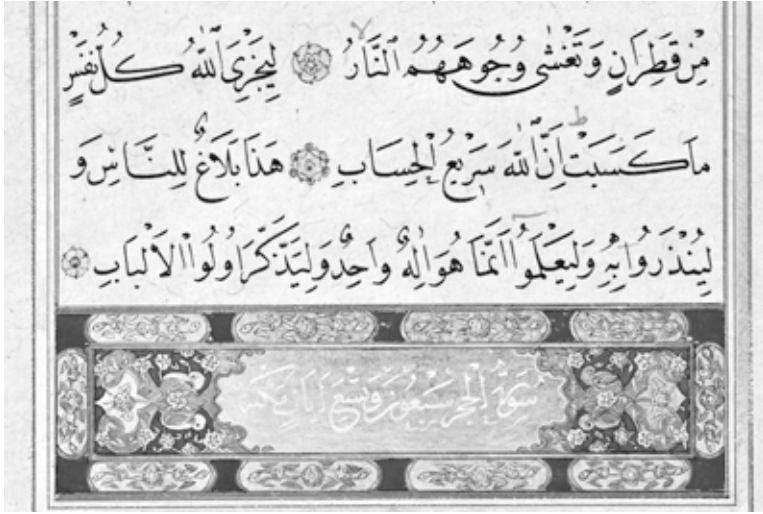 مِنْ قَطِرَانٍ وَتَغْشٰى وُجُوهَهُمُ النَّارُ لِيَجْزِيَ اللّٰهُ كُلَّ نَفْسٍ
مَا كَسَبَتْ اِنَّ اللّٰهَ سَرِيعُ الْحِسَابِ هَذَا بَلَاغٌ لِلنَّاسِ وَ
لِيُنْذَرُوا بِهِ وَلِيَعْلَمُوا اَنَّمَا هُوَ اِلٰهٌ وَاحِدٌ وَلِيَذَّكَّرَ اُولُوا الْاَلْبَابِ
سورة الحجر تسعون وتسع ايات مكية